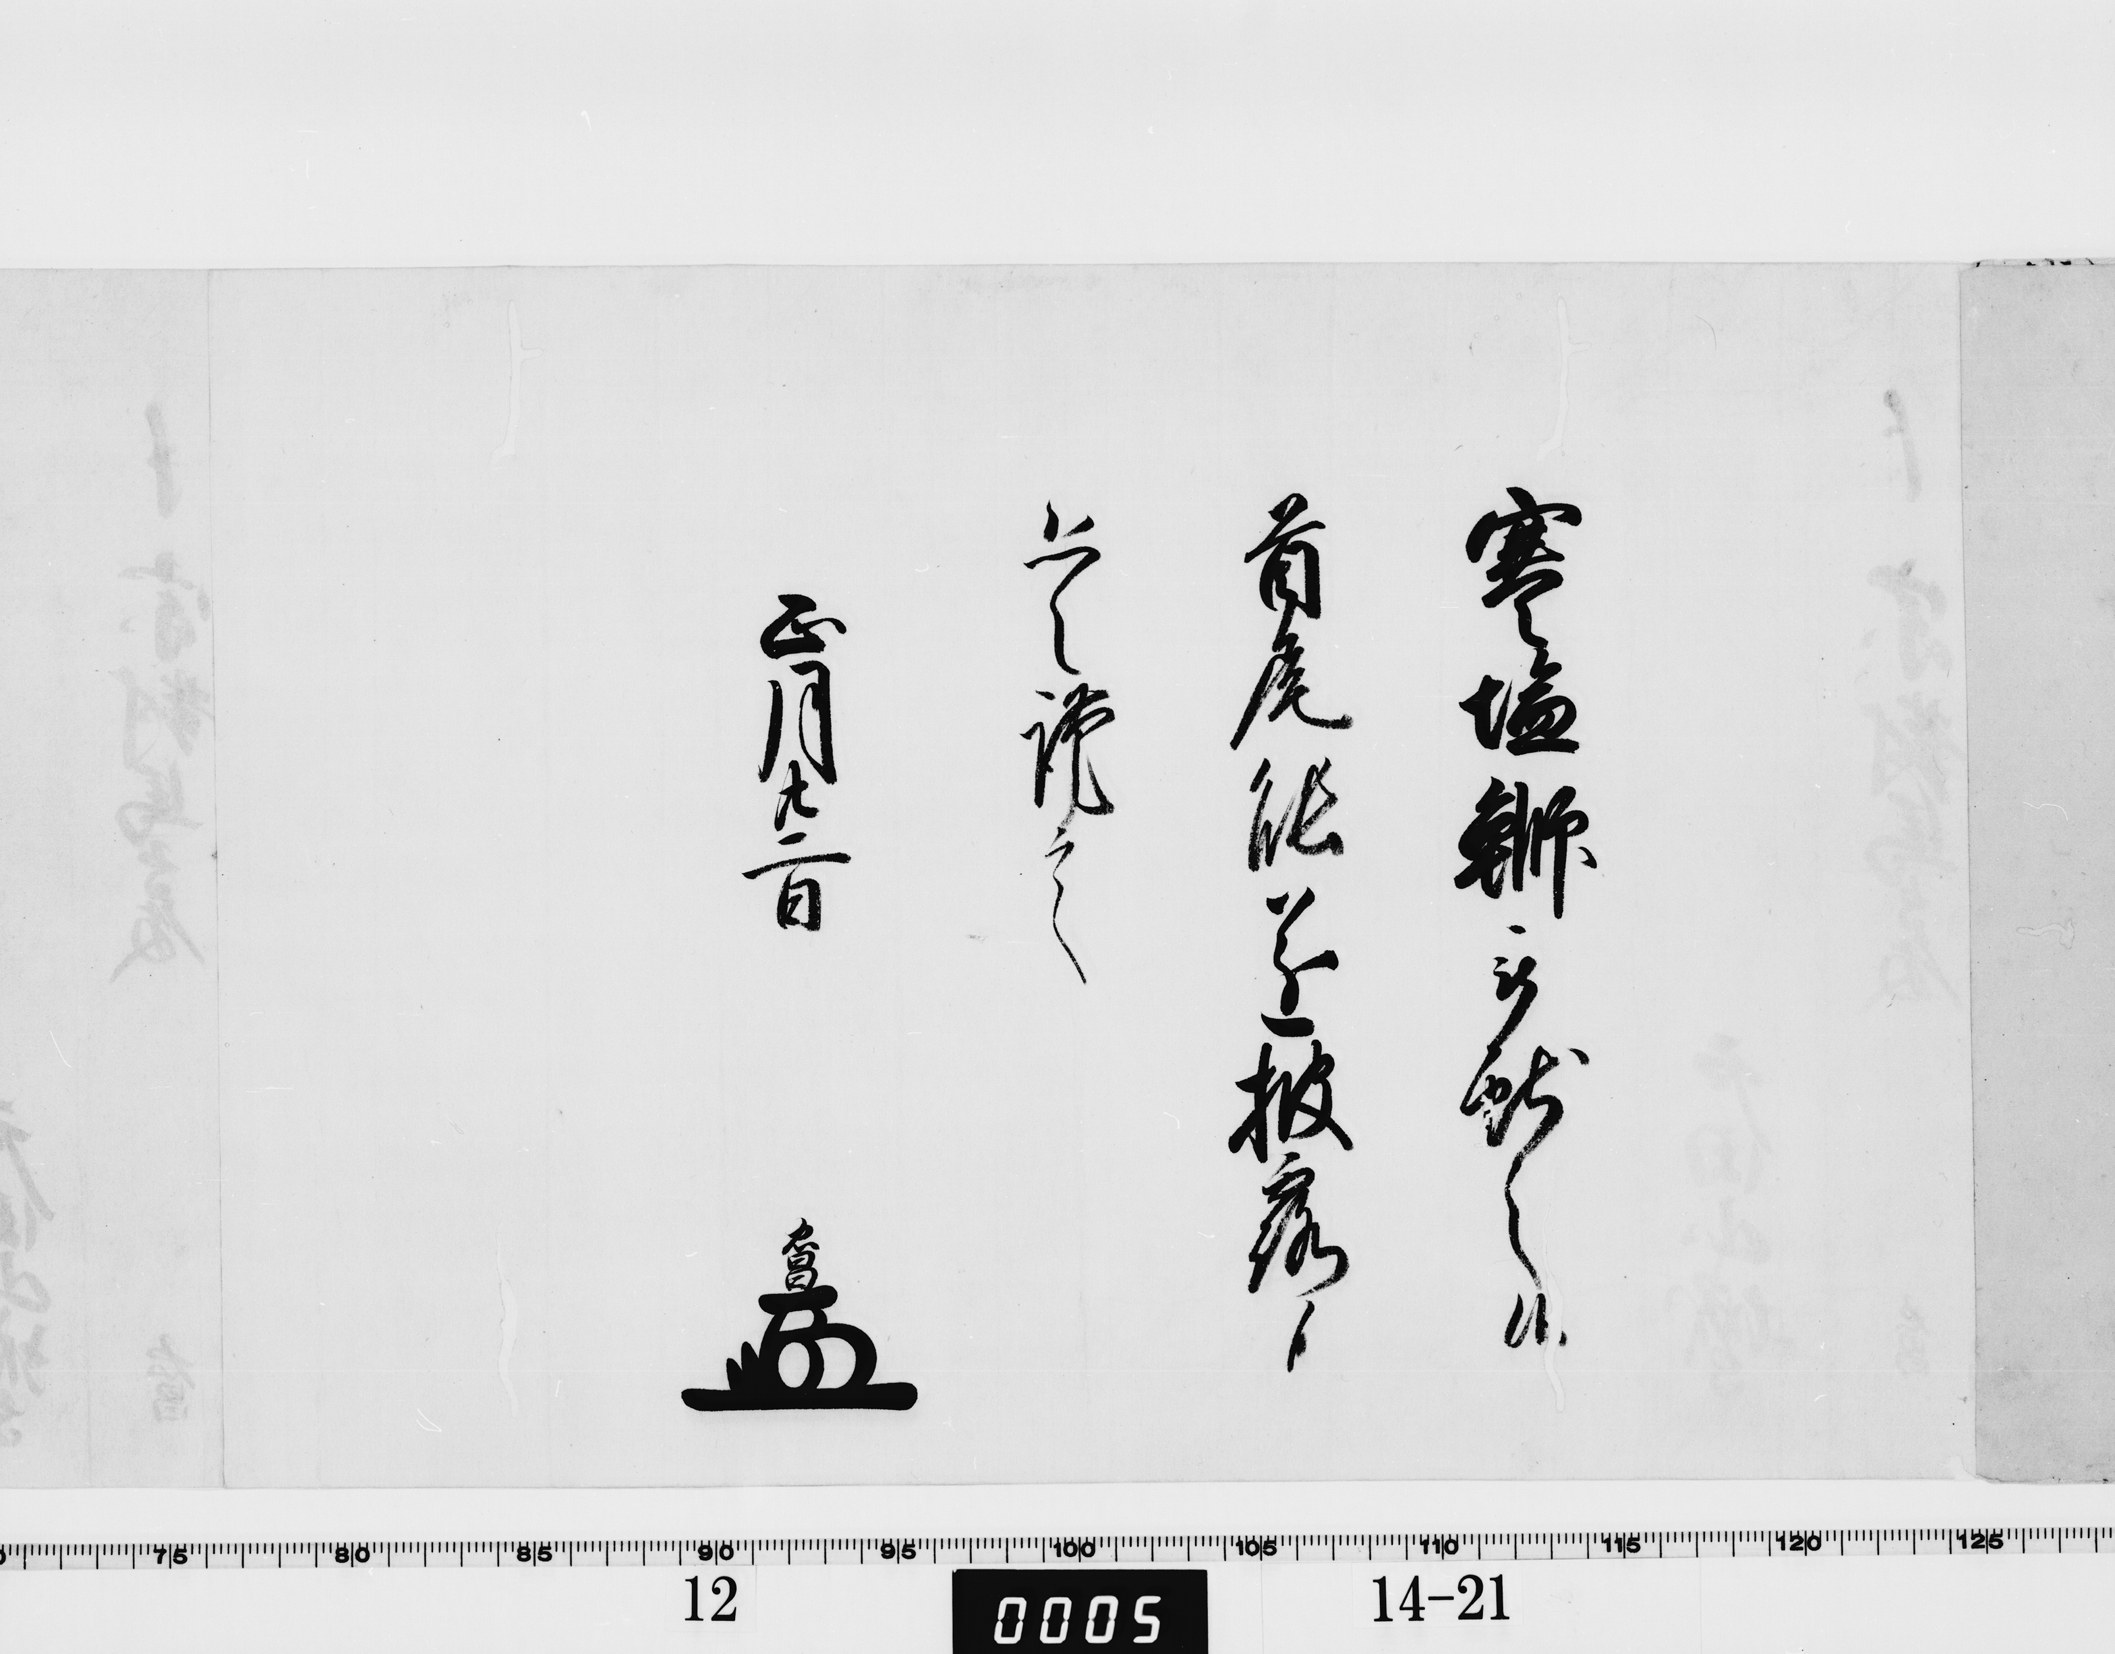 寒塩鰤被献之候
首尾能遂披露候
恐々謹言
正月廿二日
75 80 85 90 95 100 105 110 115 120 125
12 0005 14-21